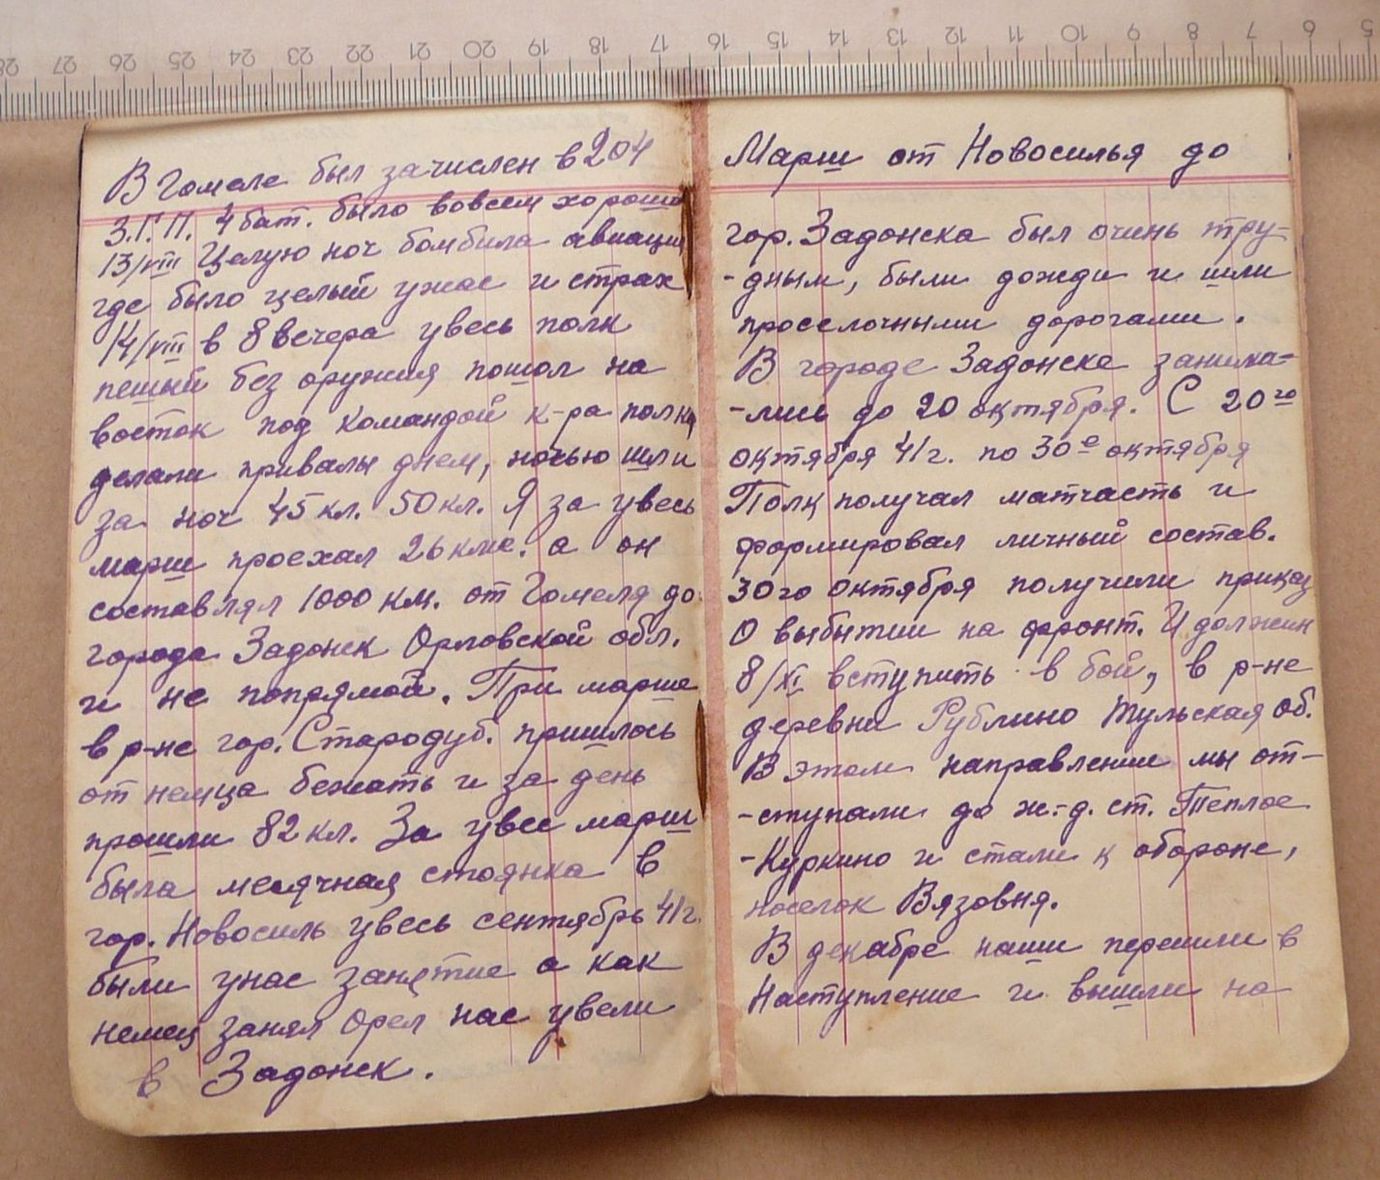 28 27 26 25 24 23 22 21 20 19 18 17 16 15 14 13 12 11 10 9 8 7 6 5
В Гомеле был зачислен в 204
З.Г.П. 4 бат. было вовсем хорошо
13/VIII Целую ноч бомбила авиация
где было целый ужас и страх
14/VIII в 8 вечера увесь полк
пеший без оружия пошол на
восток под командой к-ра полка
делали привалы днем, ночью шли
за ноч 45 кл. 50 кл. Я за увесь
марш проехал 26 клм. а он
составлял 1000 км. от Гомеля до
города Задонск Орловской обл.
и не попрямой. При марше
в р-не гор. Стародуб. пришлось
от немца бежать и за день
прошли 82 кл. За увес марш
была месячная стоянка в
гор. Новосиль увесь сентябрь 41г.
были унас занятие а как
немец занял Орел нас увели
в Задонск.
Марш от Новосилья до
гор. Задонска был очень тру-
-дным, были дожди и шли
проселочными дорогами.
В городе Задонске занима-
-лись до 20 октября. С 20го
октября 41г. по 30е октября
Полк получал матчасть и
формировал личный состав.
30го октября получили приказ
О выбытии на фронт. И должен
8/XI вступить в бой, в р-не
деревни Рублино Тульская об.
В этом направлении мы от-
-ступали до ж.-д. ст. Теплое
-Куркино и стали к обороне,
поселок Вязовня.
В декабре наши перешли в
Наступление и вышли на